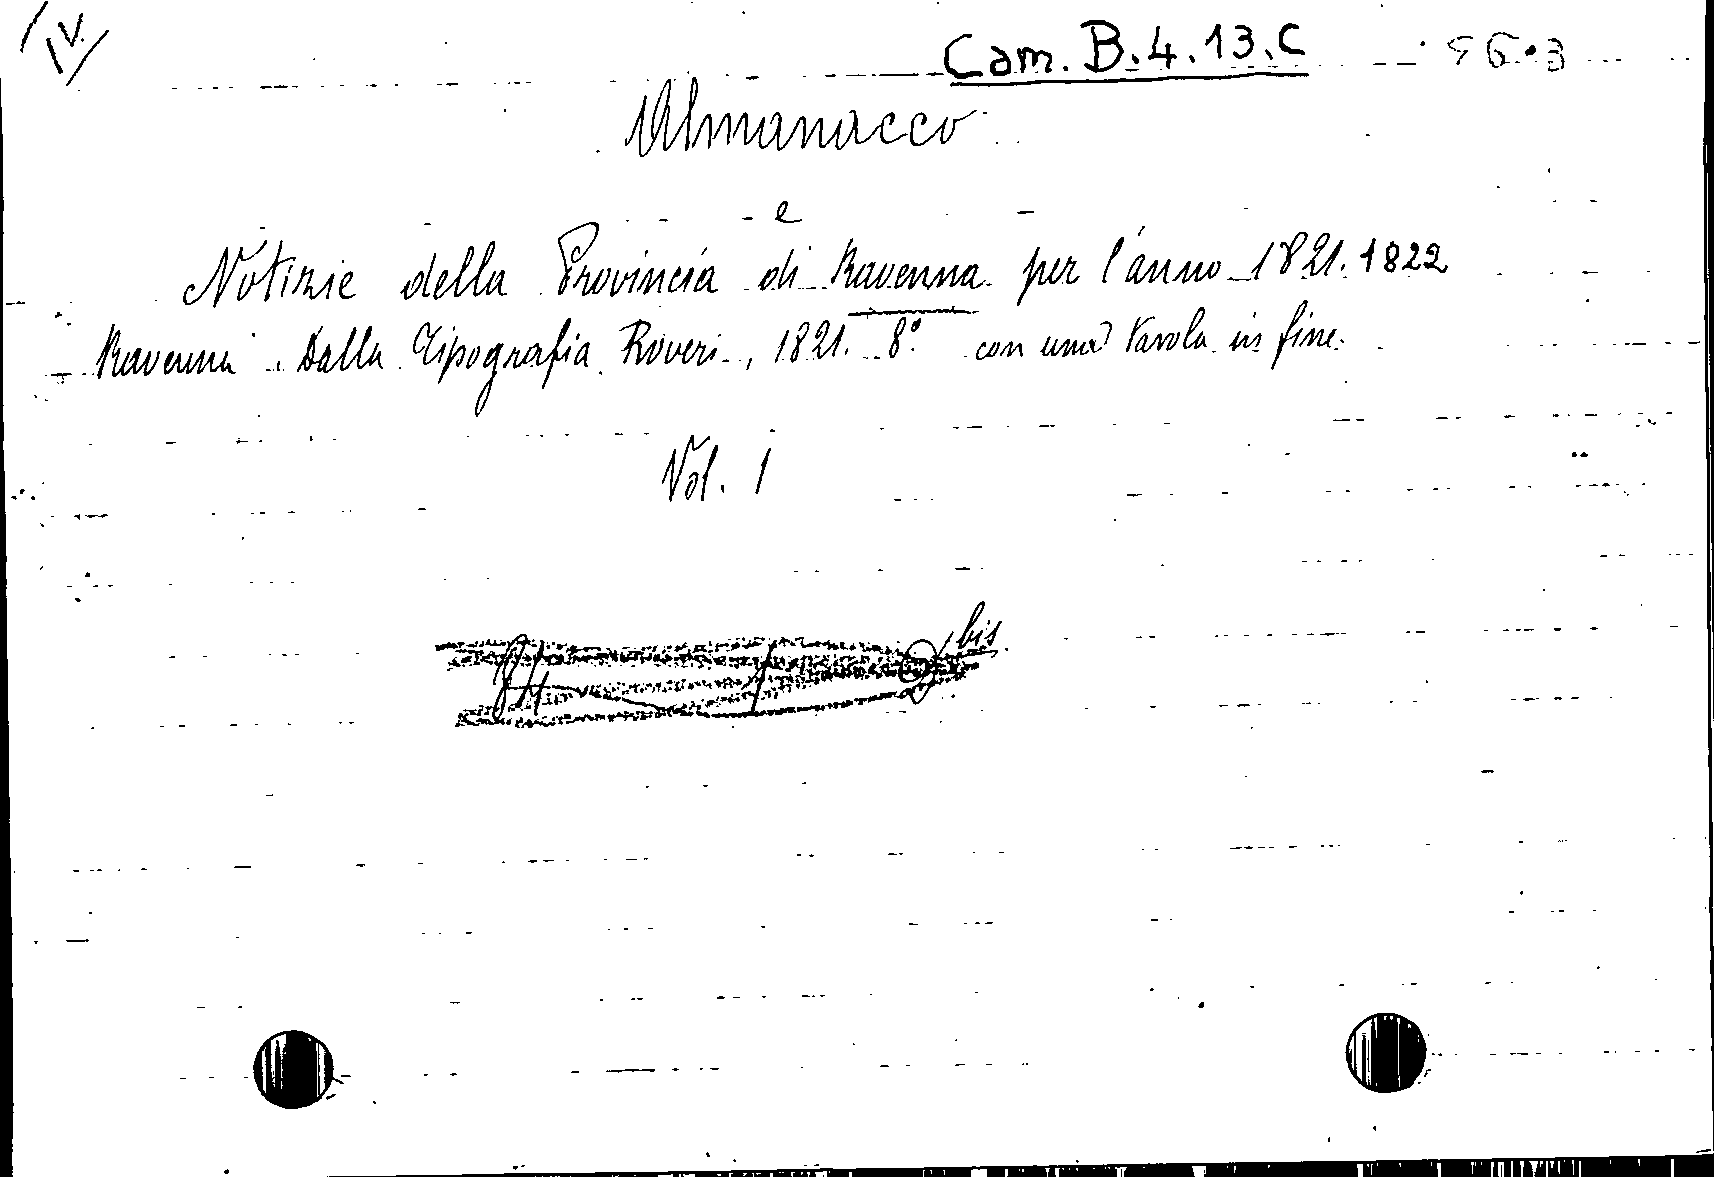 IV.
Cam. B.4.13.C
Almanacco
e
Notizie della Provincia di Ravenna per l'anno 1821. 1822
Ravenna. Dalla Tipografia Roveri, 1821. 8.° con una tavola in fine.
Vol. 1
bis